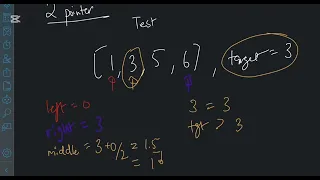 2 pointer
Test
[1, 3, 5, 6], target = 3
left = 0
right = 3
middle = 3+0/2 = 1.5
= 1
3 = 3
tgt > 3